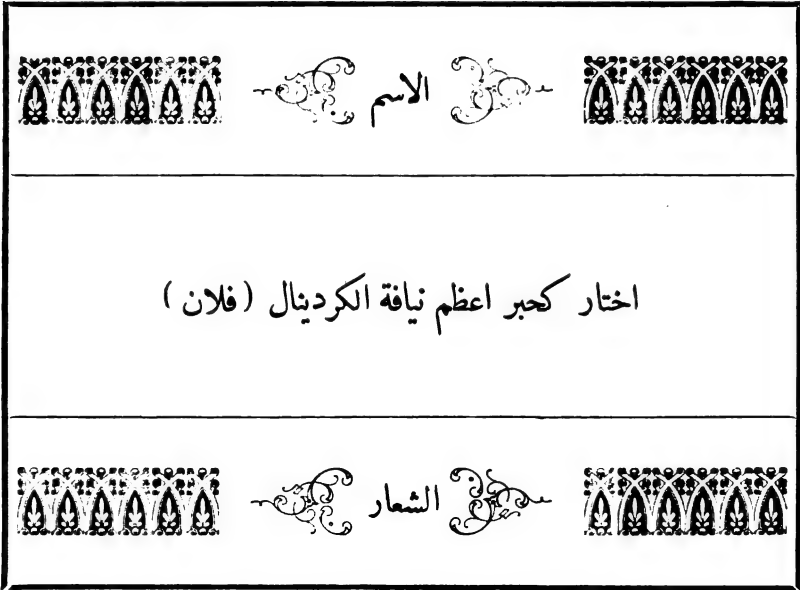 الاسم
اختار كحبر اعظم نيافة الكردينال ( فلان )
الشعار